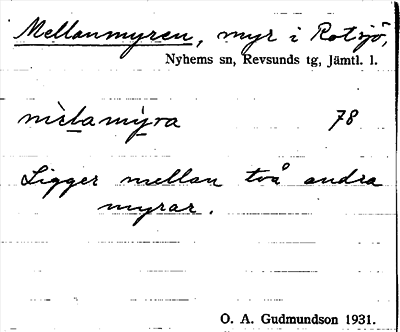 Mellanmyren, myr i Rotsjö,
Nyhems sn, Revsunds tg, Jämtl. l.
78
Ligger mellan två andra
myrar.
O. A. Gudmundson 1931.